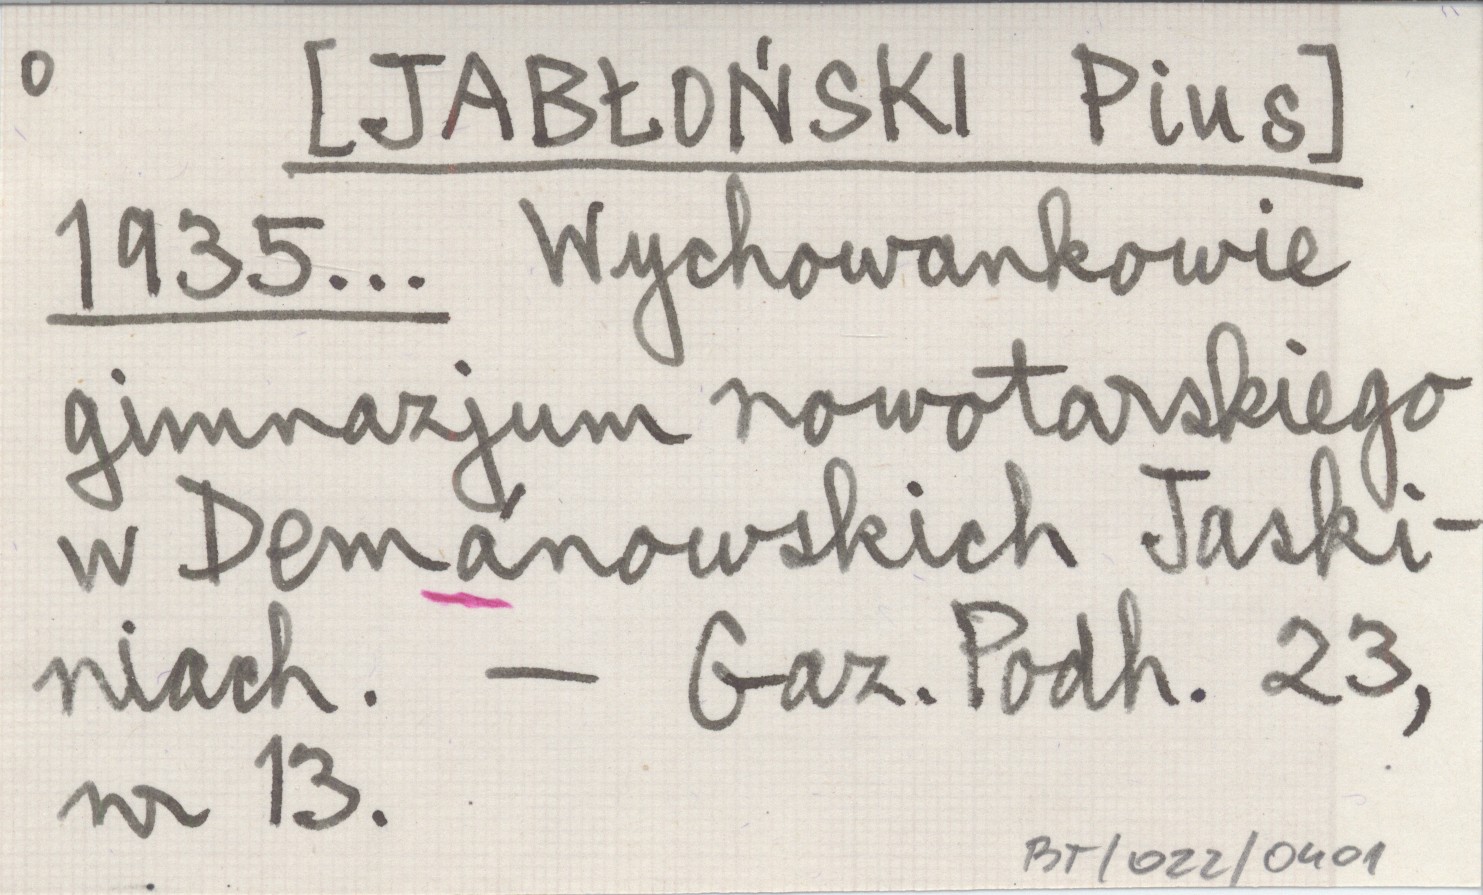 o [JABŁOŃSKI Pius]
1935... Wychowankowie
gimnazjum nowotarskiego
w Demänowskich Jaski-
niach. — Gaz. Podh. 23,
nr 13.
BT/022/0401